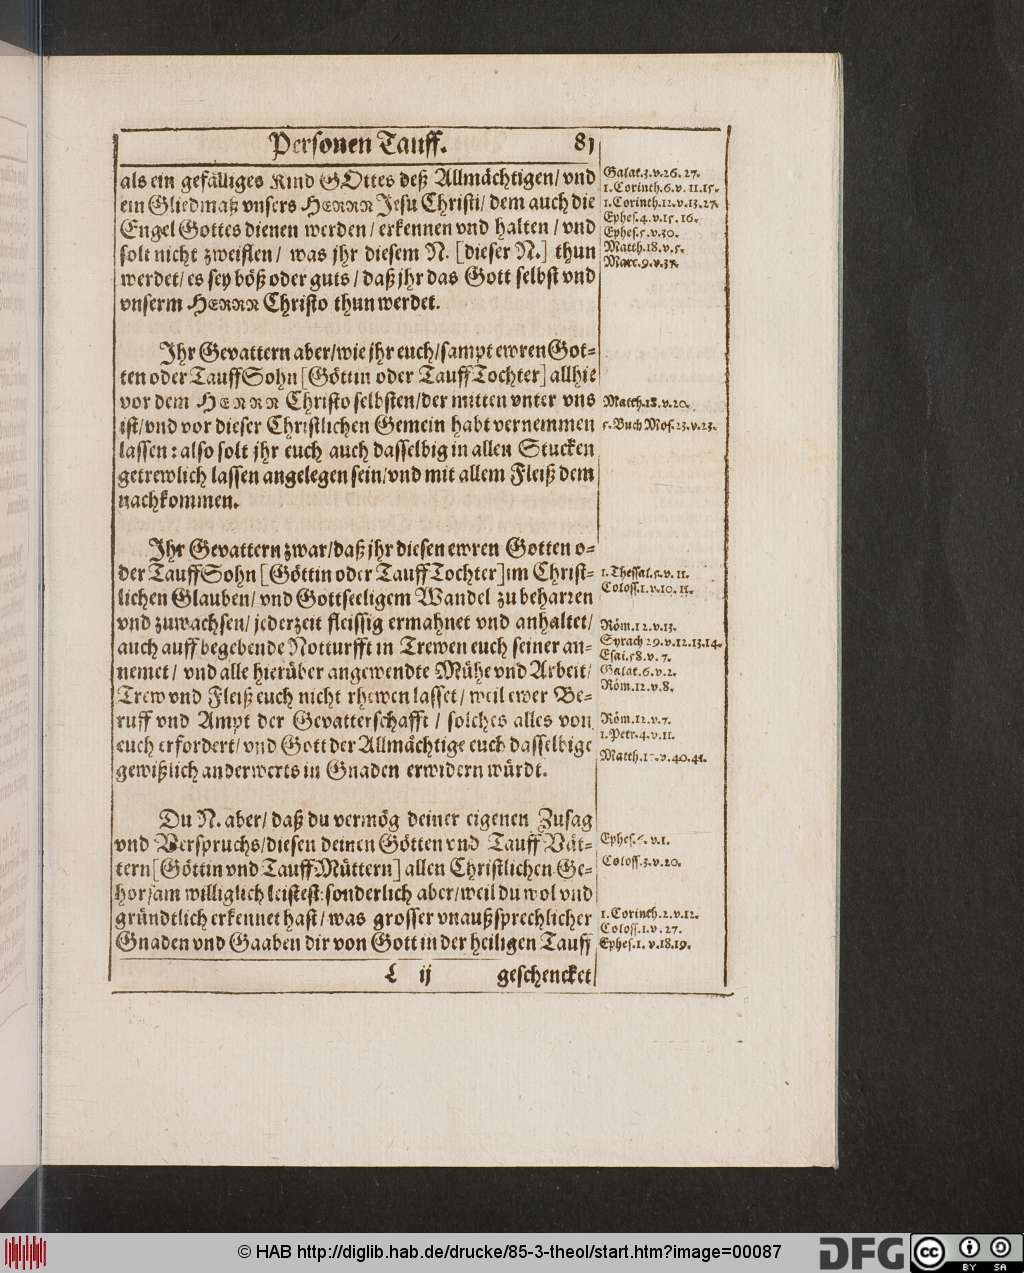 Personen Tauff. 81
als ein gefälliges Kind GOttes deß Allmächtigen/ vnd
ein Gliedmaß vnsers HERRN Jesu Christi/ dem auch die
Engel Gottes dienen werden/ erkennen vnd halten/ vnd
solt nicht zweiflen/ was jhr diesem N. [dieser N.] thun
werdet/ es sey böß oder guts/ daß jhr das Gott selbst vnd
vnserm HERRN Christo thun werdet.
Galat.3.v.26.27.
1.Corinth.6.v.11.15.
1.Corinth.12.v.13.27.
Ephes.4.v.15.16.
Ephes.5.v.30.
Matth.18.v.5.
Marc.9.v.37.
Ihr Gevattern aber/ wie jhr euch/ sampt ewren Got-
ten oder TauffSohn [Göttin oder TauffTochter] allhie
vor dem HERRN Christo selbsten/ der mitten vnter vns
ist/ vnd vor dieser Christlichen Gemein habt vernemmen
lassen: also solt jhr euch auch dasselbig in allen Stucken
getrewlich lassen angelegen sein/ vnd mit allem Fleiß dem
nachkommen.
Matth.18.v.20.
5.Buch Mos.23.v.23.
Ihr Gevattern zwar/ daß jhr diesen ewren Gotten o-
der TauffSohn [Göttin oder TauffTochter] im Christ-
lichen Glauben/ vnd Gottseeligem Wandel zu beharren
vnd zuwachsen/ jederzeit fleissig ermahnet vnd anhaltet/
auch auff begebende Notturfft in Trewen euch seiner an-
nemet/ vnd alle hierüber angewendte Mühe vnd Arbeit/
Trew vnd Fleiß euch nicht rhewen lasset/ weil ewer Be-
ruff vnd Ampt der Gevatterschafft/ solches alles von
euch erfordert/ vnd Gott der Allmächtige euch dasselbige
gewißlich anderwerts in Gnaden erwidern würdt.
1.Thessal.5.v.11.
Coloss.1.v.10.11.
Röm.12.v.13.
Syrach 29.v.12.13.14.
Esai.58.v.7.
Galat.6.v.2.
Röm.12.v.8.
Röm.12.v.7.
1.Petr.4.v.11.
Matth. v.40.41.
Du N. aber/ daß du vermög deiner eigenen Zusag
vnd Verspruchs/ diesen deinen Götten vnd Tauff Vät-
tern [Göttin vnd TauffMüttern] allen Christlichen Ge-
horsam williglich leistest: sonderlich aber/ weil du wol vnd
gründtlich erkennet hast/ was grosser vnaußsprechlicher
Gnaden vnd Gaaben dir von Gott in der heiligen Tauff
Ephes.6.v.1.
Coloss.3.v.20.
1.Corinth.2.v.12.
Coloss.1.v.27.
Ephes.1.v.18.19.
L ij geschencket
© HAB http://diglib.hab.de/drucke/85-3-theol/start.htm?image=00087
DFG
cc BY SA